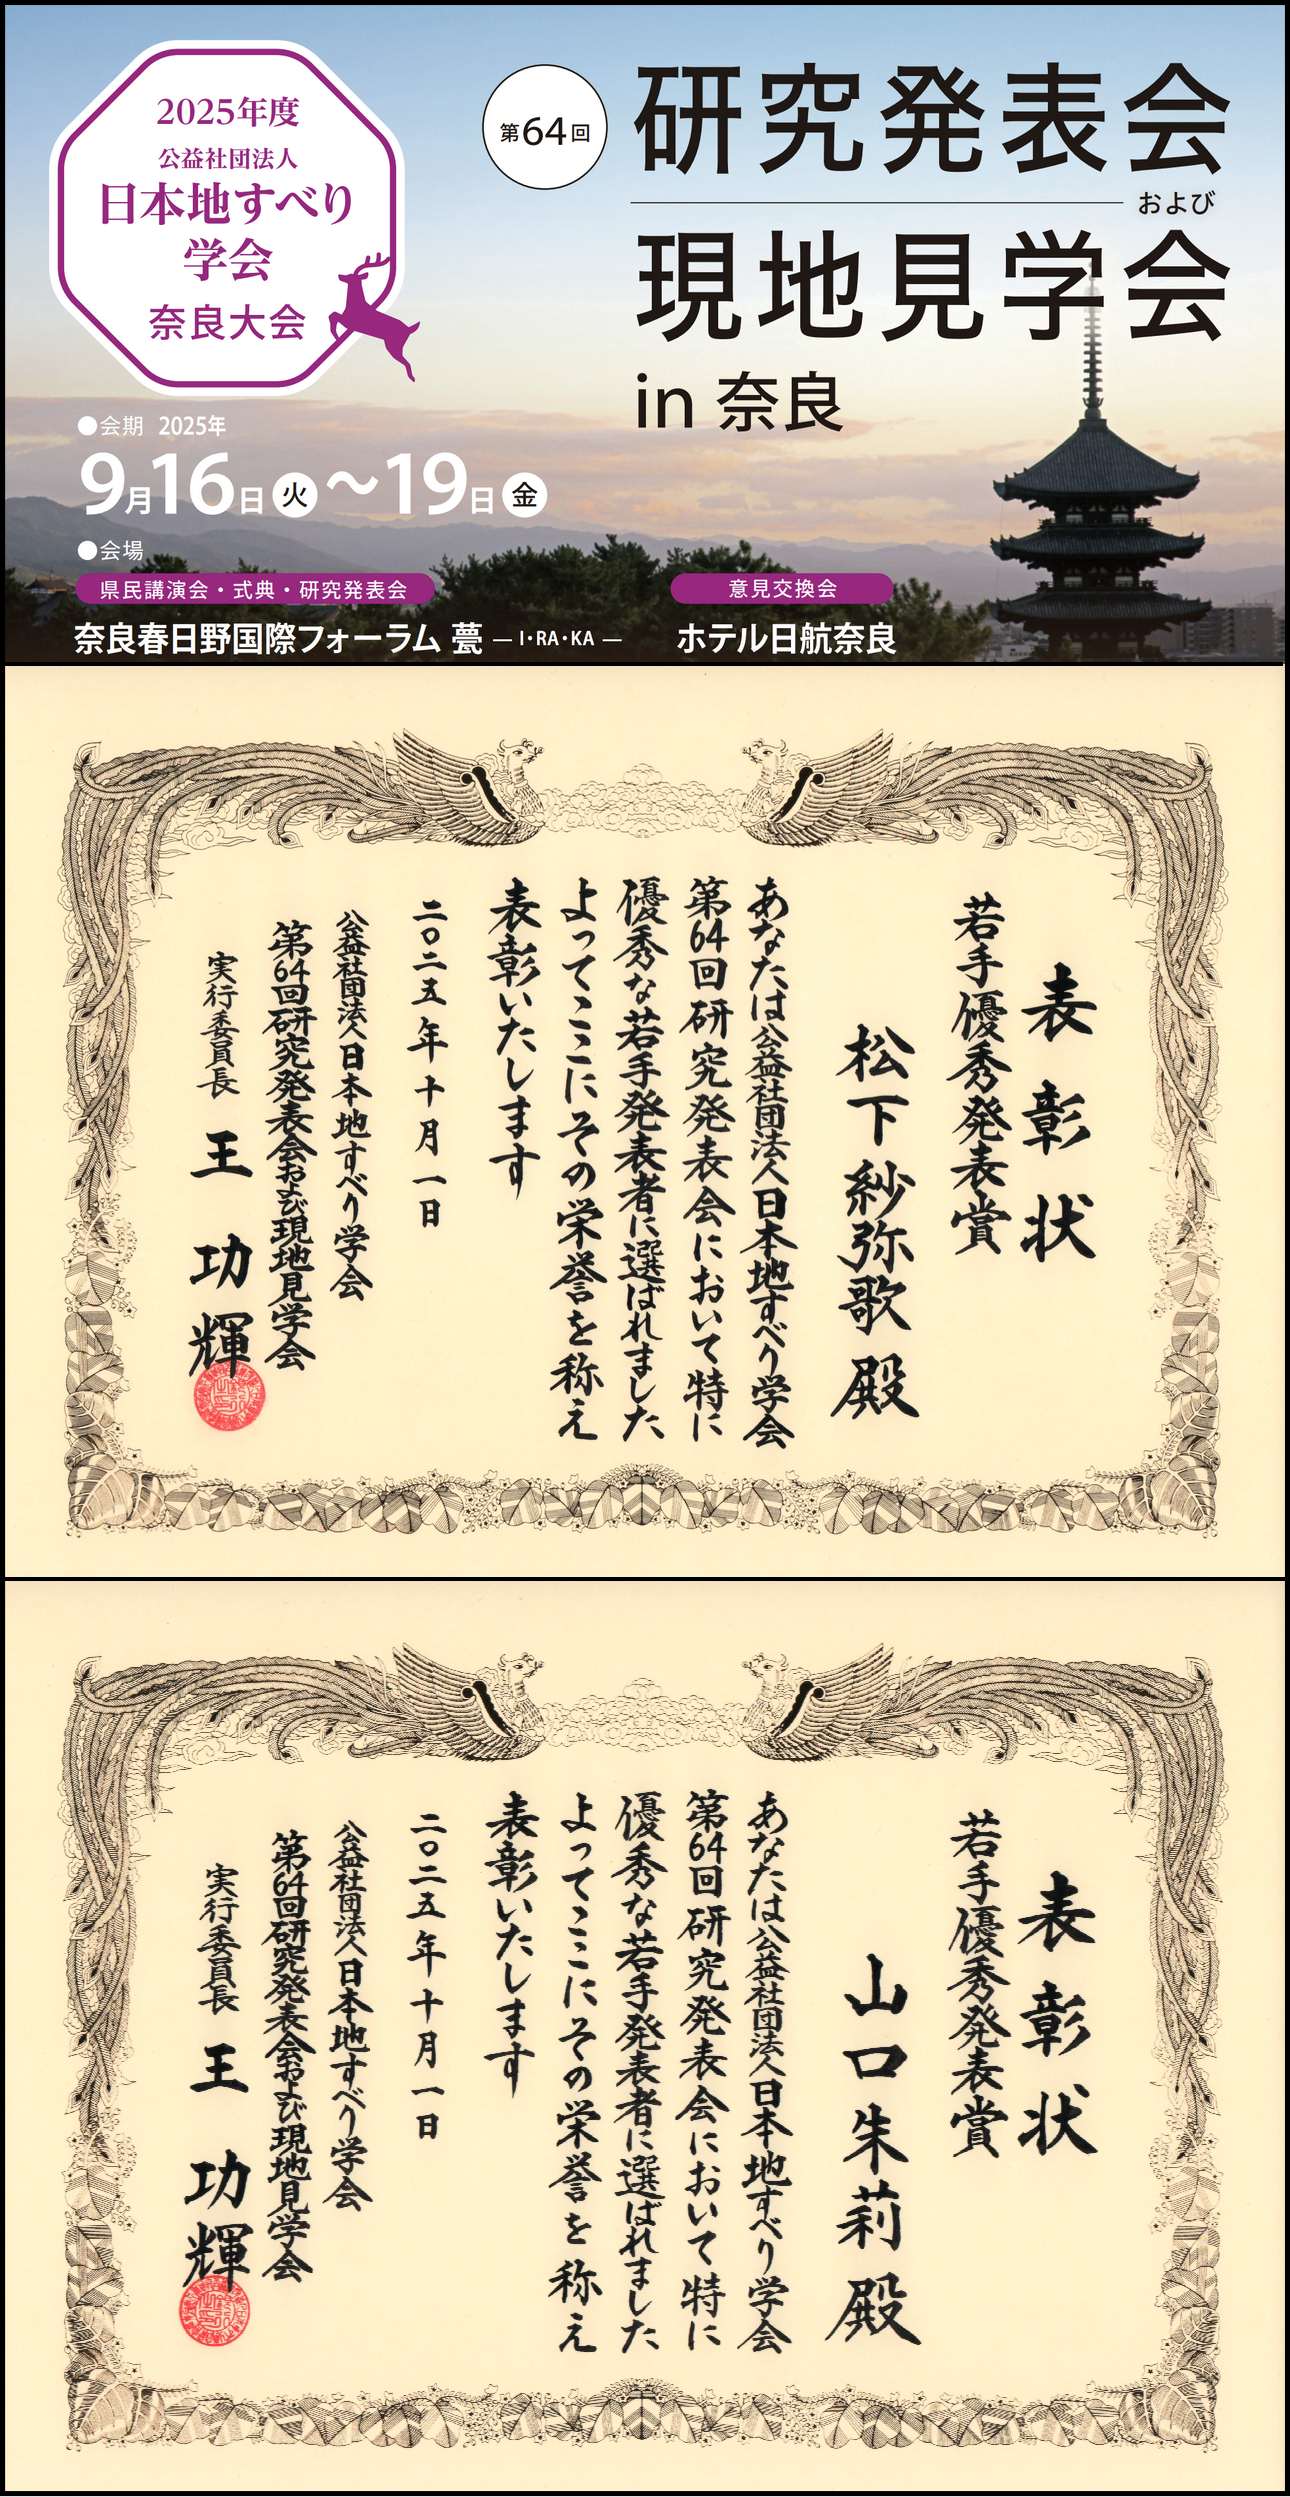 2025年度
公益社団法人
日本地すべり
学会
奈良大会
第64回
研究発表会
および
現地見学会
in 奈良
●会期 2025年
9月16日火～19日金
●会場
県民講演会・式典・研究発表会
奈良春日野国際フォーラム 甍 ― I・RA・KA ―
意見交換会
ホテル日航奈良
表彰状
若手優秀発表賞
松下紗弥歌殿
あなたは公益社団法人日本地すべり学会
第64回研究発表会において特に
優秀な若手発表者に選ばれました
よってここにその栄誉を称え
表彰いたします
二〇二五年十月一日
公益社団法人日本地すべり学会
第64回研究発表会および現地見学会
実行委員長 王 功輝
表彰状
若手優秀発表賞
山口朱莉殿
あなたは公益社団法人日本地すべり学会
第64回研究発表会において特に
優秀な若手発表者に選ばれました
よってここにその栄誉を称え
表彰いたします
二〇二五年十月一日
公益社団法人日本地すべり学会
第64回研究発表会および現地見学会
実行委員長 王 功輝